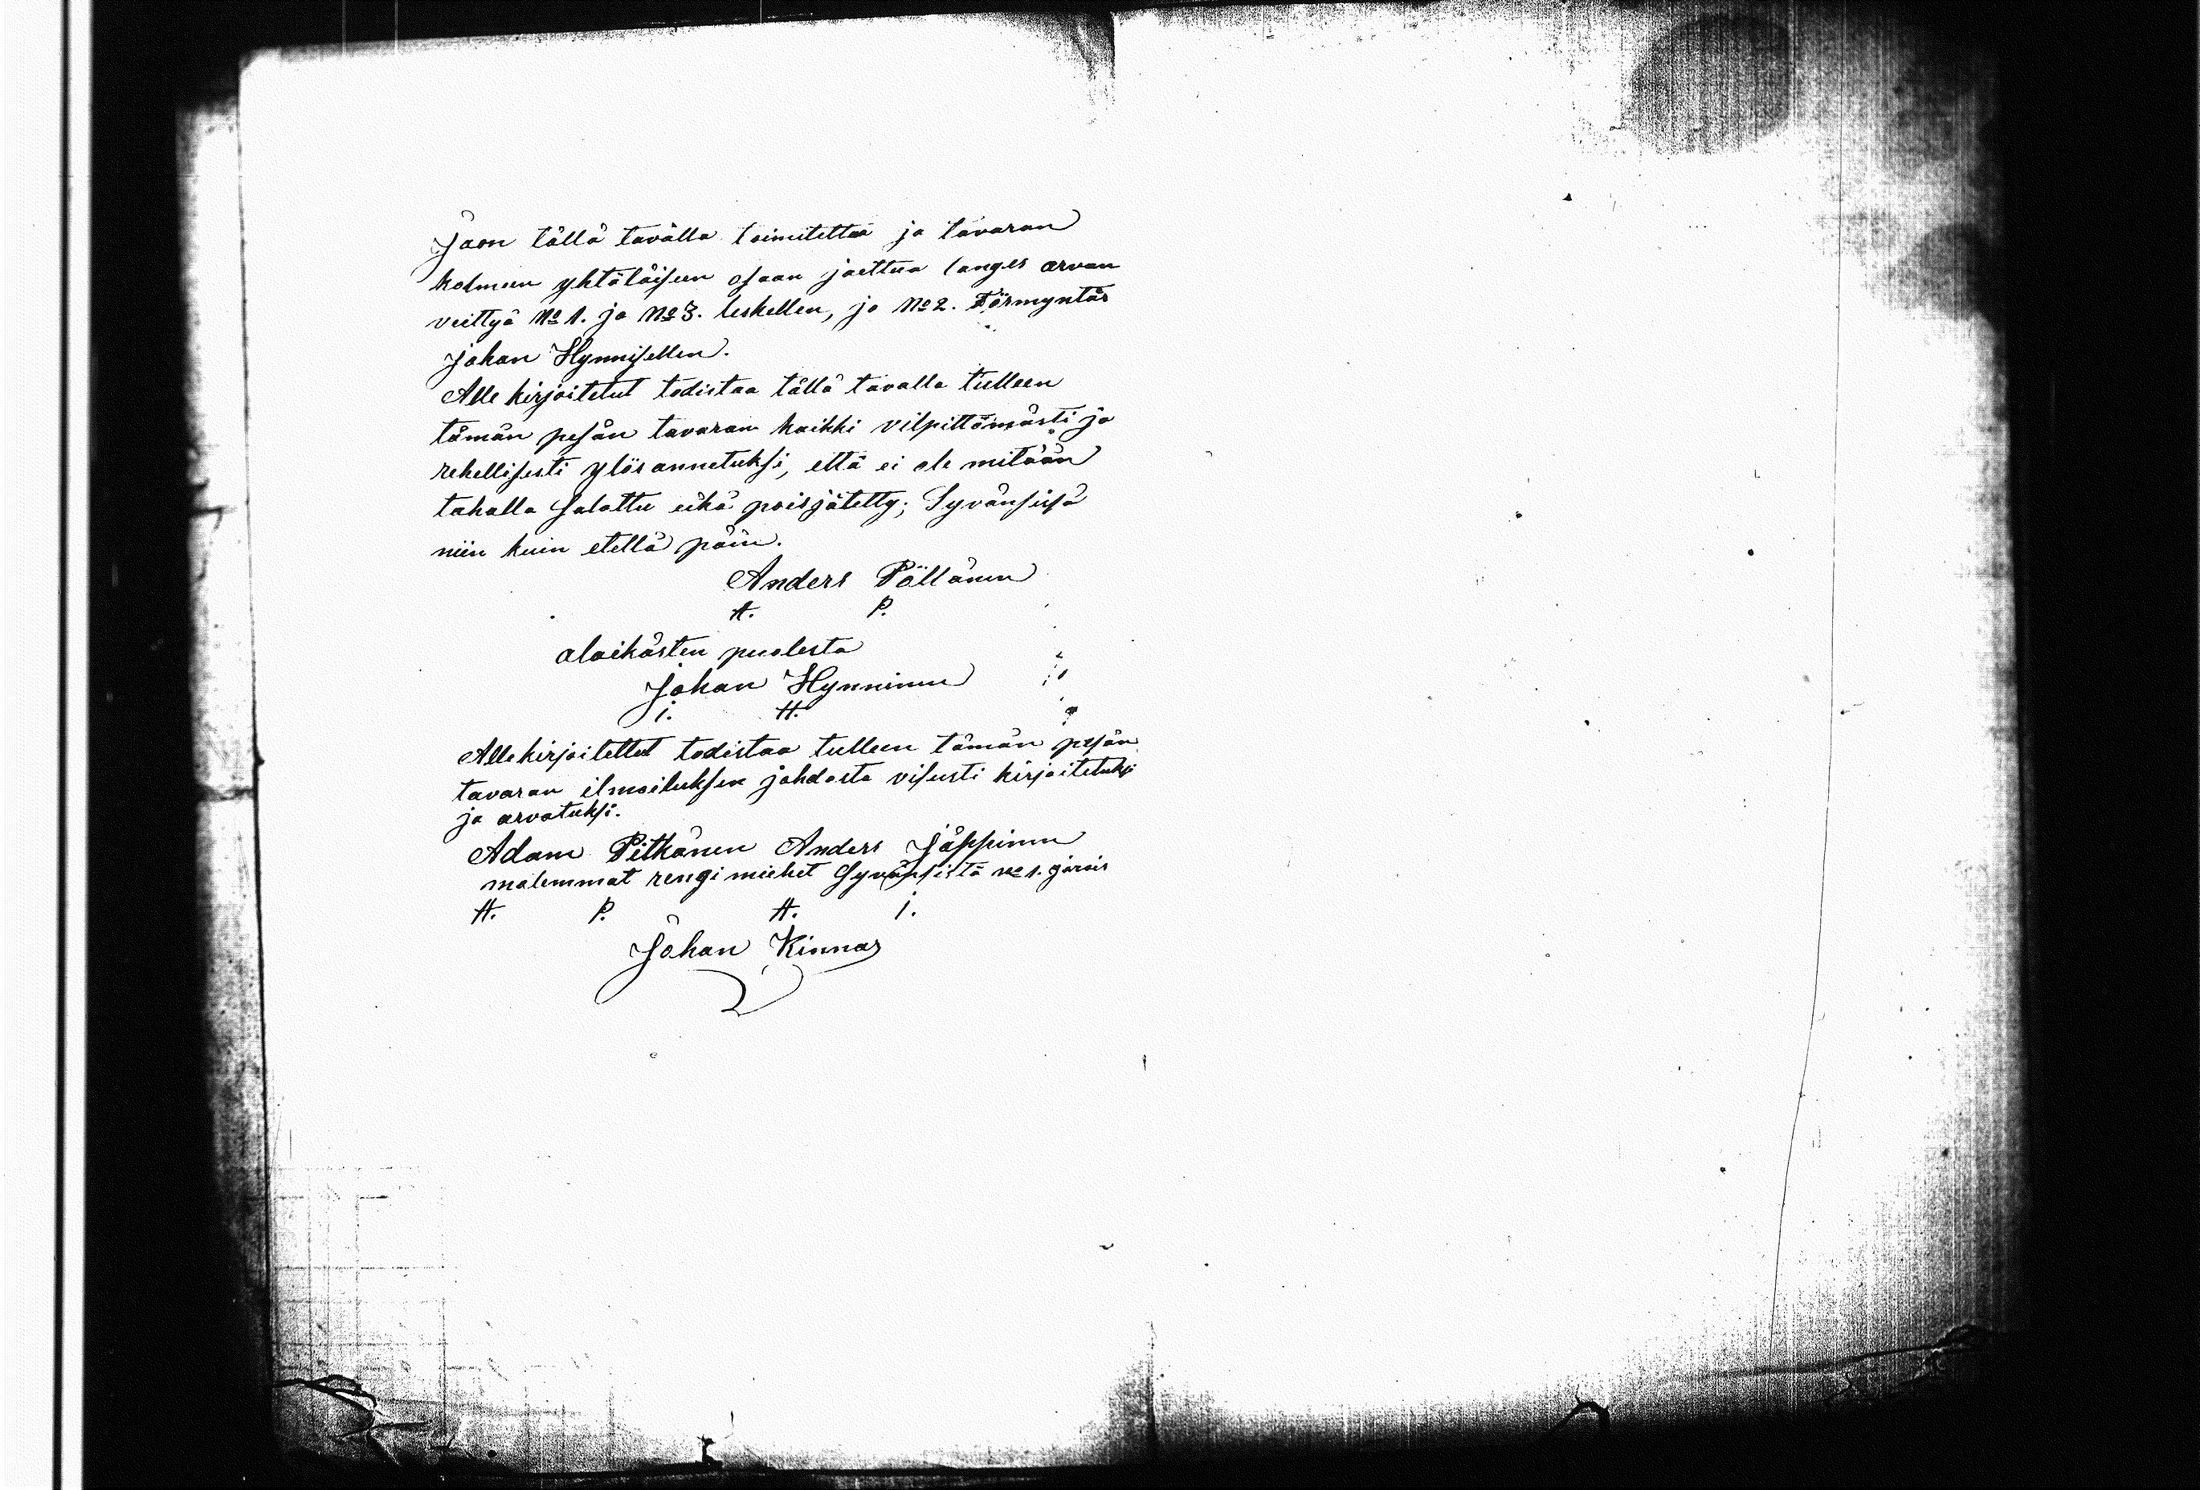 Jaon tällä tavalla toimitettua ja tavaran
kolmeen yhtäläiseen osaan jaettua langes arvan
veittyä No 1. ja No 3. leskellen, ja No 2. Förmyntär
Johan Hynnisellen.
Allekirjoitetut todistaa tällä tavalla tulleen
tämän pesän tavaran kaikki vilpittömästi ja
rehellisesti ylös annetuksi, että ei ole mitään
tahalla salattu eikä poisjätetty; Syvänsisä
niin kuin etellä päin.
Anders Pöllänen
A. P.
alaikästen puolesta
Johan Hynninen
i. H.
Allekirjoitettut todistaa tulleen tämän pesän
tavaran ilmoituksen johdosta visusti kirjoitetuksi
ja arvatuksi.
Adam Pitkänen Anders Jäppinen
malemmat rengimiehet Syvänsistä no 1.
A. P. A. i.
Johan Kinnar